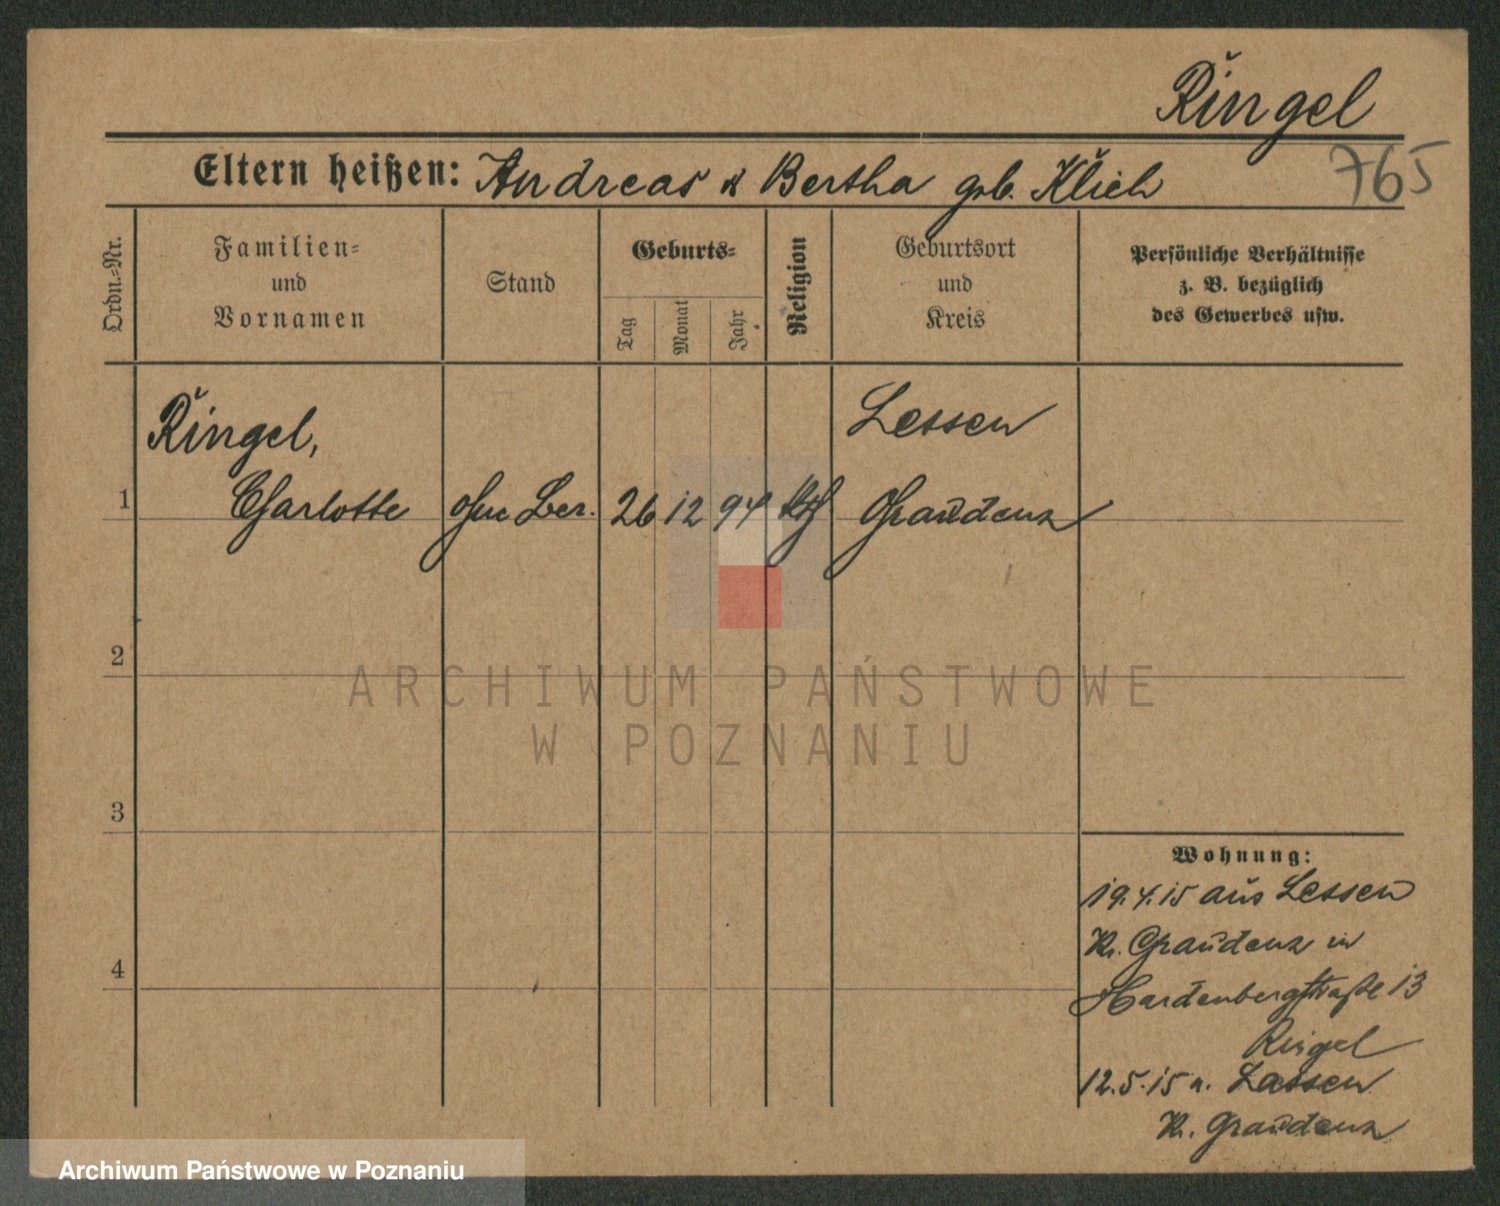 Ringel
765
Eltern heißen: Andreas u Bertha geb. Klich
Ordn.-Nr.
Familien-
und
Vornamen
Stand
Geburts-
Tag
Monat
Jahr
Religion
Geburtsort
und
Kreis
Persönliche Verhältnisse
z. B. bezüglich
des Gewerbes usw.
Ringel, Lessen
1 Charlotte ohne Ber. 26 12 94 kth Graudenz
2
ARCHIWUM PAŃSTWOWE
W POZNANIU
3
Wohnung:
19.4.15 aus Lessen
4
Kr. Graudenz in
Hardenbergstraße 13
Ringel
12.5.15 n. Lessen
Kr. Graudenz
Archiwum Państwowe w Poznaniu